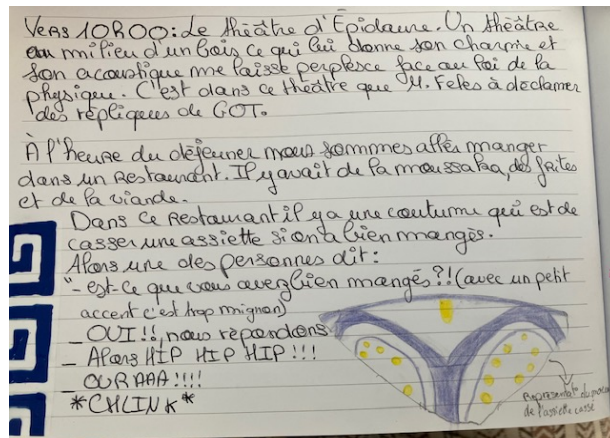 Vers 10h00: Le théâtre d'Épidaure. Un théâtre
au milieu d'un bois ce qui lui donne son charme et
son acoustique me laisse perplesce face au loi de la
physique. C'est dans ce théâtre que M. Feles à déclamer
des répliques de GOT.
À l'heure du déjeuner nous sommes allés manger
dans un Restaurant. Il y avait de la moussaka, des frites
et de la viande.
Dans ce Restaurant il y a une coutume qui est de
casser une assiette si on a bien mangés.
Alors une des personnes dit:
"- est-ce que vous avez bien mangés?! (avec un petit
accent c'est trop mignon)
_ OUI!!, nous répondons.
_ Alors HIP HIP HIP!!!
_ OURAAA!!!!
*CHLINK*
de l'assiette cassé